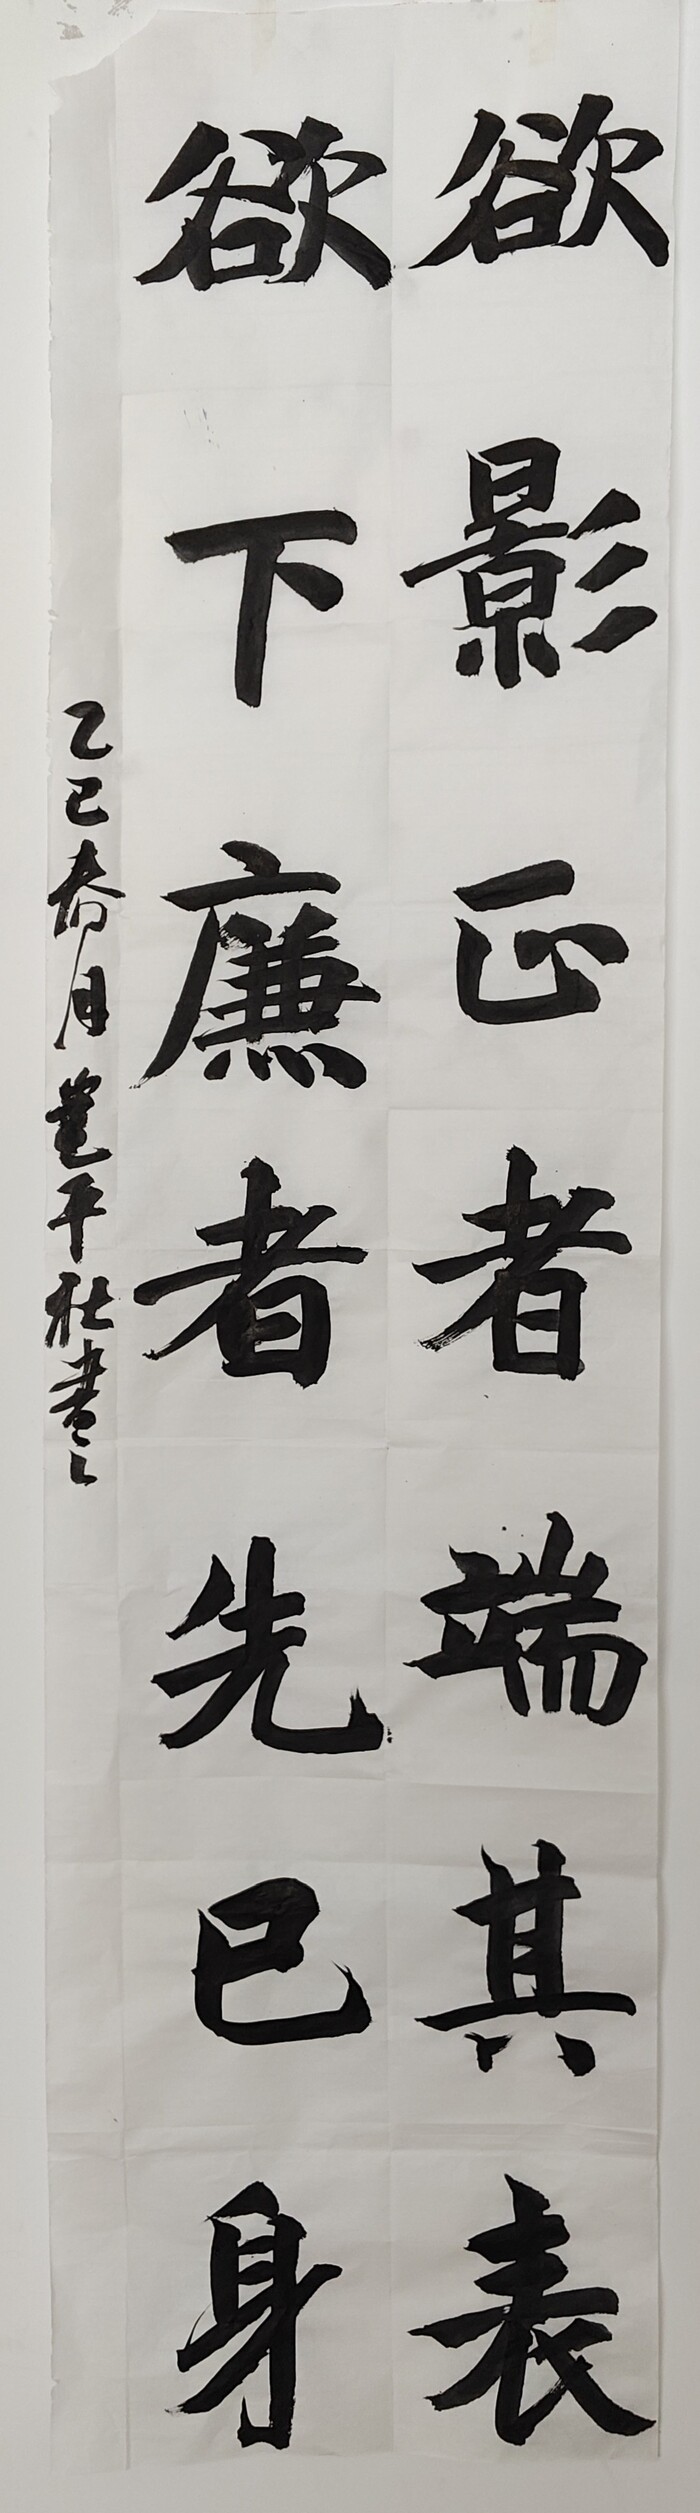 欲影正者端其表
欲下廉者先己身
乙巳春月 平 书